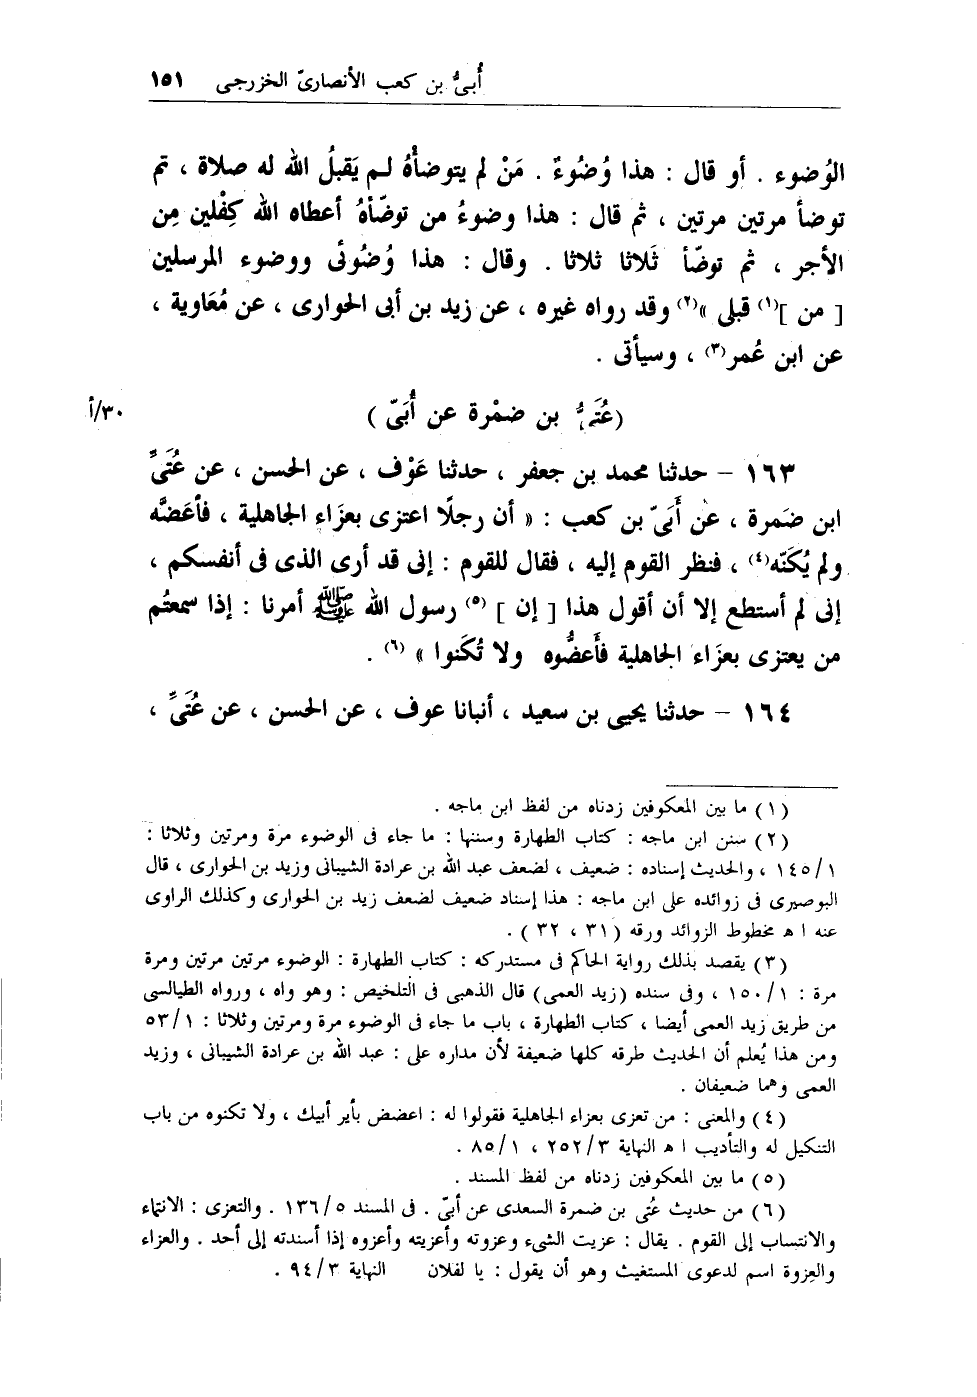 أُبىُّ بن كعب الأنصارىّ الخزرجى ١٥١
الوُضوء . أو قال : هذا وُضُوءٌ . مَنْ لم يتوضأْهُ لـم يَقبلُ الله له صلاة ، ثم
توضأ مرتين مرتين ، ثم قال : هذا وضوءُ من توضّأهُ أعطاه الله كِفْلين مِن
الأجر ، ثم توضّأ ثَلاثا ثلاثا . وقال : هذا وُضُوئى ووضوء المرسلين
[ من ](١) قبلى »(٢) وقد رواه غيره ، عن زيد بن أبى الحوارى ، عن مُعَاوية ،
عن ابن عُمر(٣) ، وسيأتى .
(عُتَىُّ بن ضمْرة عن أُبَىّ )
٣٠/أ
١٦٣ – حدثنا محمد بن جعفر ، حدثنا عَوْف ، عن الحسن ، عن عُتَىِّ
ابن ضَمرة ، عن أُبَىّ بن كعب : « أن رجلًا اعتزى بعزَاء الجاهلية ، فأعَضَّه
ولم يُكَنّه(٤) ، فنظر القوم إليه ، فقال للقوم : إنى قد أرى الذى فى أنفسكم ،
إنى لم أستطع إلا أن أقول هذا [ إن ] (٥) رسول الله ﷺ أمرنا : إذا سمعتُم
من يعتزى بعزَاء الجاهلية فأَعضُّوه ولا تُكَنوا » (٦) .
١٦٤ – حدثنا يحيى بن سعيد ، أنبانا عوف ، عن الحسن ، عن عُتَىِّ ،
(١) ما بين المعكوفين زدناه من لفظ ابن ماجه .
(٢) سنن ابن ماجه : كتاب الطهارة وسننها : ما جاء فى الوضوء مرة ومرتين وثلاثا :
١٤٥/١ ، والحديث إسناده : ضعيف ، لضعف عبد الله بن عرادة الشيبانى وزيد بن الحوارى ، قال
البوصيرى فى زوائده على ابن ماجه : هذا إسناد ضعيف لضعف زيد بن الحوارى وكذلك الراوى
عنه ا ﻫ مخطوط الزوائد ورقه ( ٣١ ، ٣٢ ) .
(٣) يقصد بذلك رواية الحاكم فى مستدركه : كتاب الطهارة : الوضوء مرتين مرتين ومرة
مرة : ١٥٠/١ ، وفى سنده (زيد العمى) قال الذهبى فى التلخيص : وهو واه ، ورواه الطيالسى
من طريق زيد العمى أيضا ، كتاب الطهارة ، باب ما جاء فى الوضوء مرة ومرتين وثلاثا : ٥٣/١
ومن هذا يُعلم أن الحديث طرقه كلها ضعيفة لأن مداره على : عبد الله بن عرادة الشيبانى ، وزيد
العمى وهما ضعيفان .
(٤) والمعنى : من تعزى بعزاء الجاهلية فقولوا له : اعضض بأير أبيك ، ولا تكنوه من باب
التنكيل له والتأديب ا ﻫ النهاية ٢٥٢/٣ ، ٨٥/١ .
(٥) ما بين المعكوفين زدناه من لفظ المسند .
(٦) من حديث عُتى بن ضمرة السعدى عن أبىّ . فى المسند ١٣٦/٥ . والتعزى : الانتماء
والانتساب إلى القوم . يقال : عزيت الشىء وعزوته وأعزيته وأعزوه إذا أسندته إلى أحد . والعزاء
والعِزوة اسم لدعوى المستغيث وهو أن يقول : يا لفلان النهاية ٩٤/٣ .